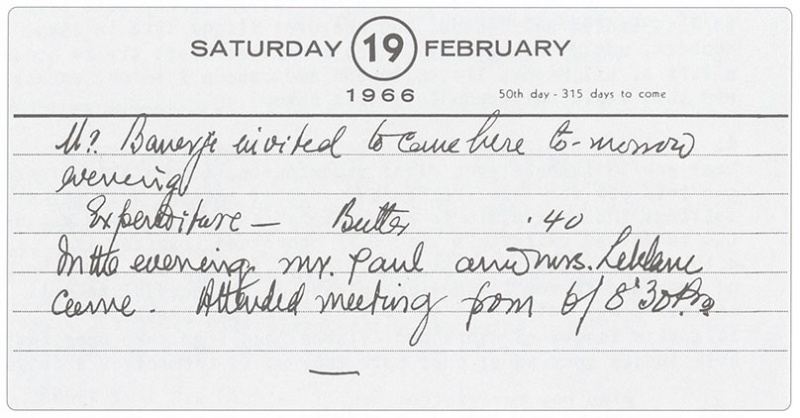 SATURDAY 19 FEBRUARY
1966 50th day - 315 days to come
Mr. Banerje invited to come here to-morrow
evening
Expenditure — Butter .40
In the evening mr. Paul and mrs. Leblanc
came. Attended meeting from 6/8'30 P.m